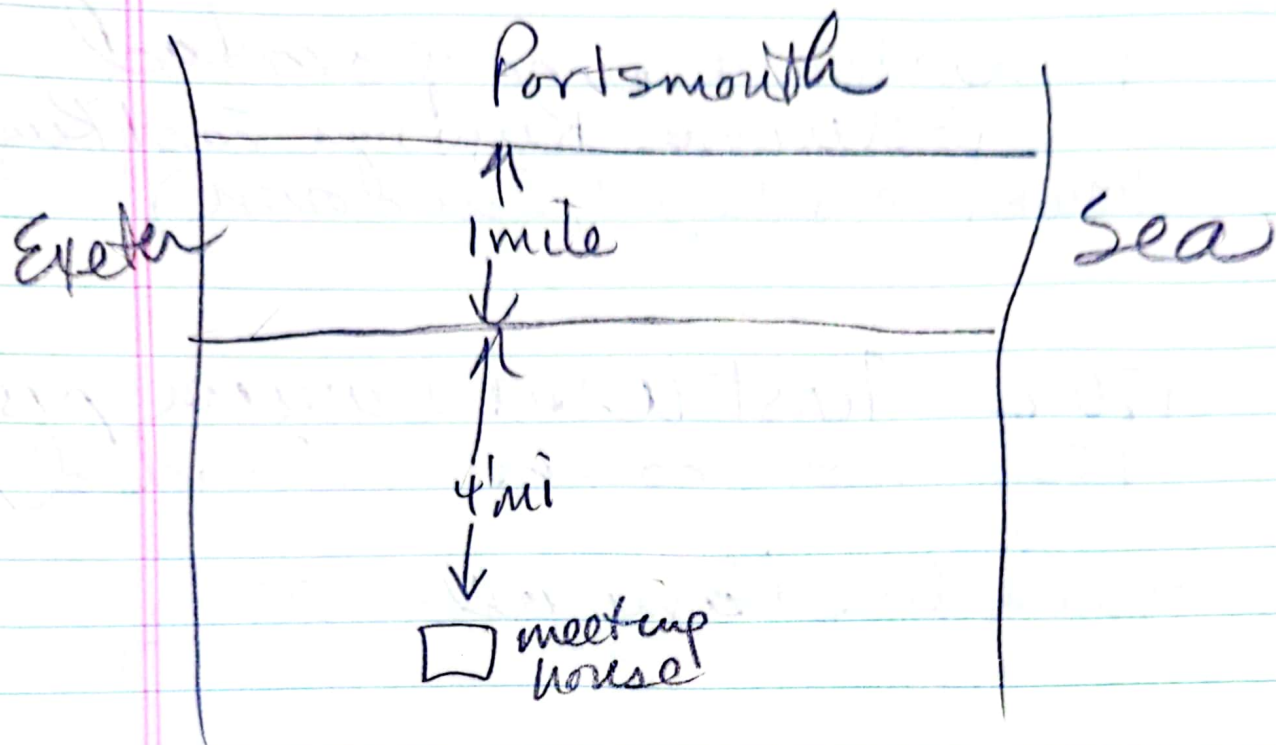 Portsmouth
Exeter
1 mile
Sea
4 mi
meeting
house